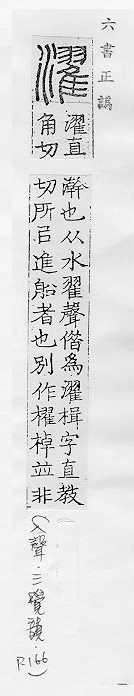 六書正譌
濯
濯直
角切
澣也从水翟聲借為濯楫字直教
切所㠯進船者也別作櫂棹並非
(入聲·三覺韻·P.166)